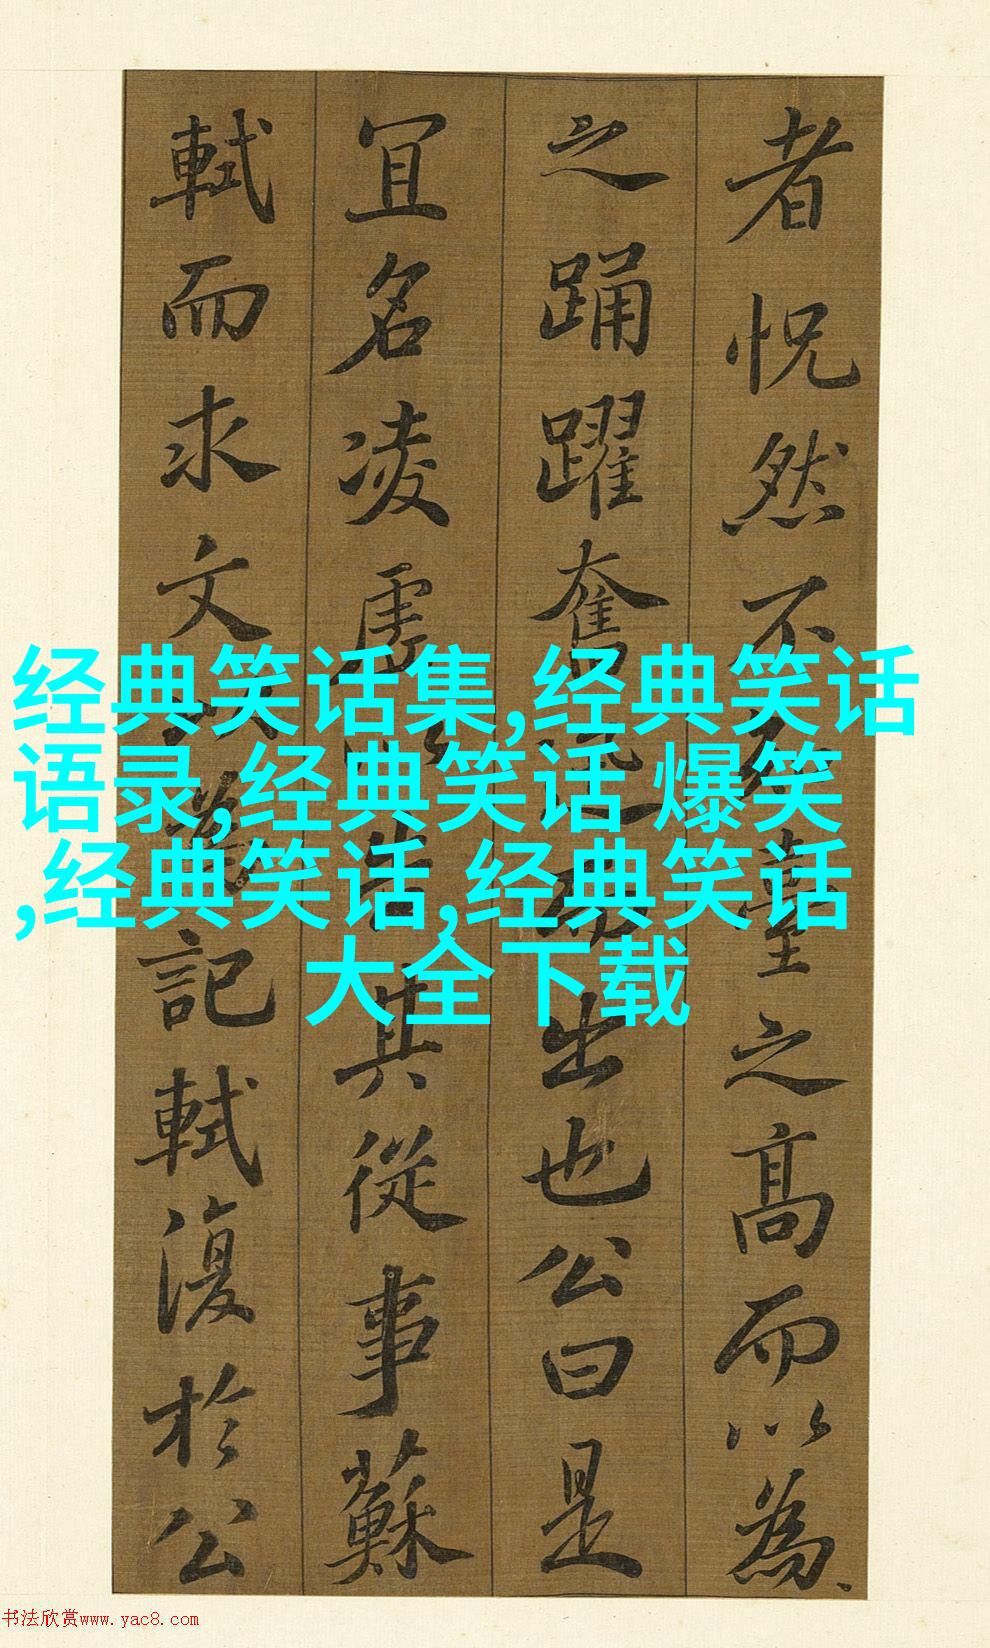 者怳然不知臺之髙而以為
之踊躍奮迅而出也公曰是
冝名凌虛以告其從事蘇
軾而求文以為記軾復於公
经典笑话集,经典笑话
语录,经典笑话 爆笑
,经典笑话,经典笑话
大全下载
书法欣赏www.yac8.com